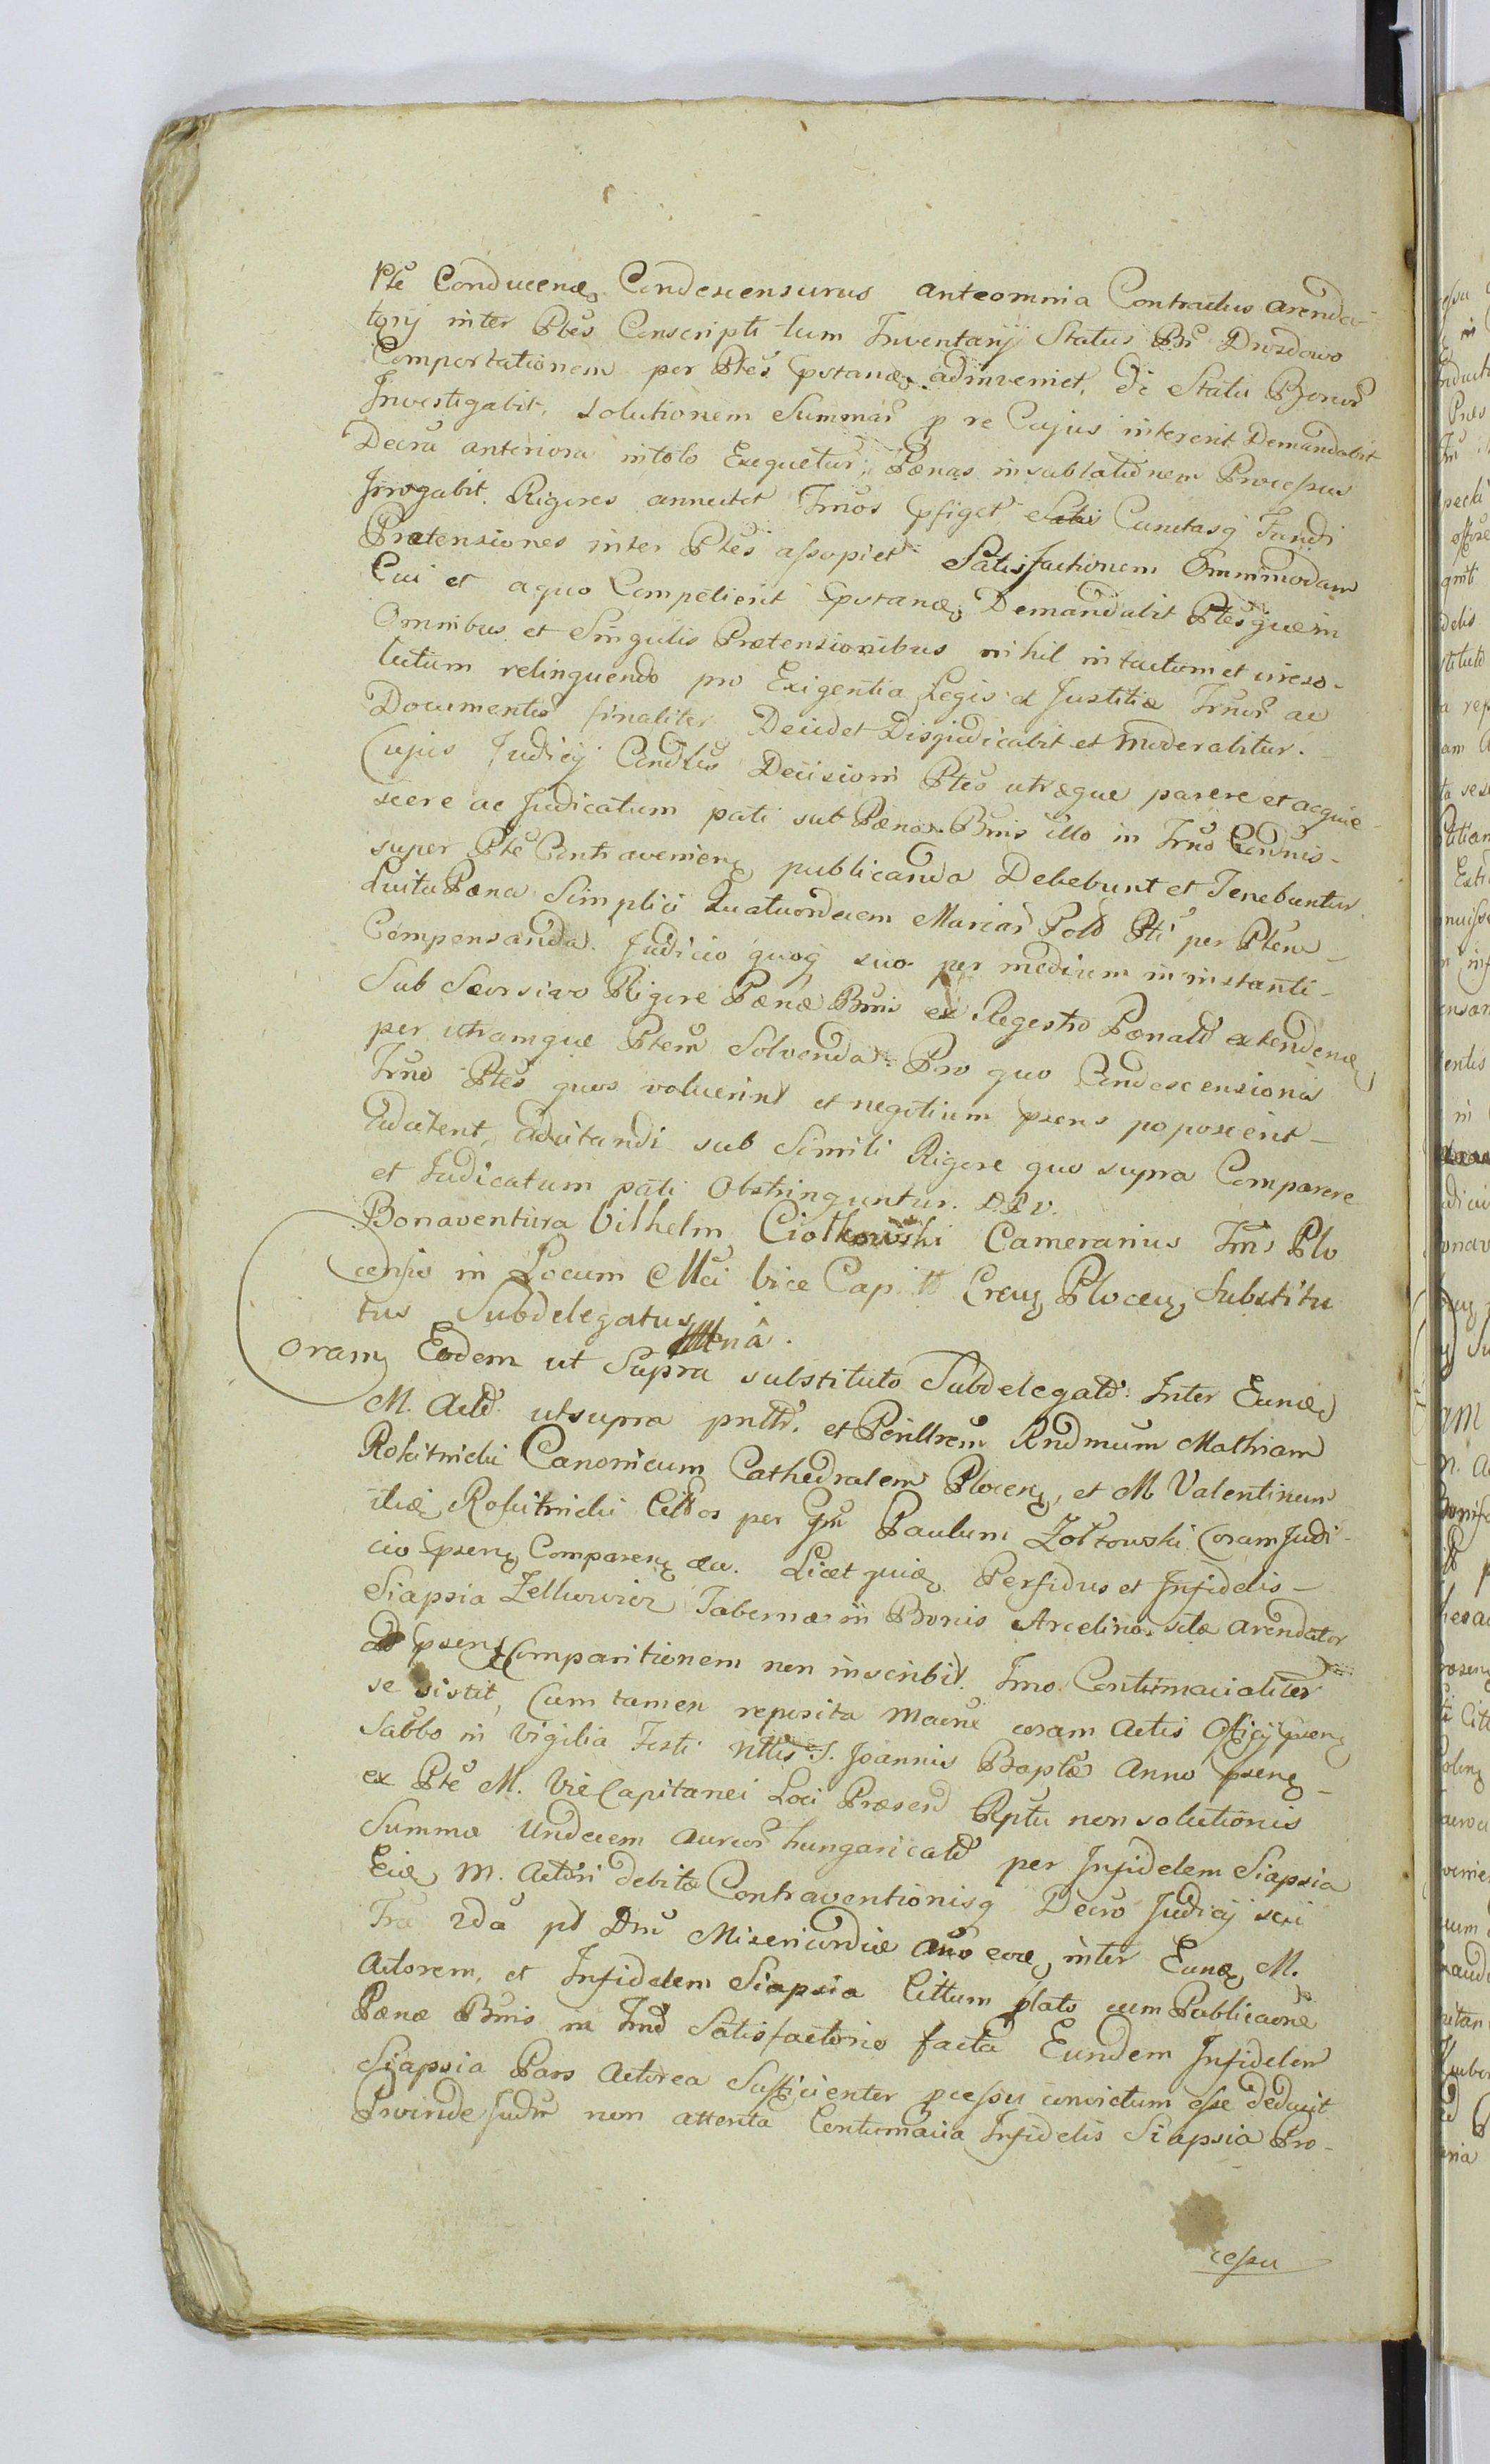 Pte Conducenæ Condescensurus anteomnia Contractus arenda-
torij inter Ptes Conscripti tum Inventarij Status Bñ Drozdowo
Comportationem per Ptes Cpstanæ adinveniet, de Statu Bonor
Investigabit, solutionem Summar p re Cujus intererit Demandabit
Decra anteriora intoto Exequetur, Pænas insublationem Processus
Irrogabit Rigores annectet Trnos Cpfiget Cunctasq Fundi
Prætensiones inter Ptes assopiet Satisfactionem Ommimodam
Cui et aquo Competierit Cpstanæ Demandabit Ptesque in
Omnibus et Singulis Prætensionibus nihil intactum et irreso-
lutum relinquendo pro Exigentia Legis et Justitiæ Trnor ac
Documentor finaliter Decidet Disjudicabit et moderabitur.
Cujus Judicij Condlis Decisioni Ptes utræque parere et acquie-
scere ac Judicatum pati sub Pænas Bnis illo in Trno Condnis-
super Pte Contravenienæ publicanda Debebunt et Tenebuntur
Luita Pæna Simplici Quatuordecem Marcar Pold Pti per Ptem
Compensanda. Judicio quoq suo per medium in instanti-
Sub Seorsivo Rigore Pænæ Bnis ex Regestro Pænald extendenæ
per utramque Ptem Solvenda. Pro quo Condescensionis
Trno Ptes quos voluerint et negotium psens poposcerit
adcitent, adcitandi sub Simili Rigore quo supra Comparere
et Judicatum pati Obstringuntur. D.P.V.
Bonaventura Vilhelm Ciołkowski Camerarius Trris Plo
censis in Locum Mci Vice Capitt Creuæ Plocen Substitu
tus Subdelegatus mña.
Coram Eodem ut Supra substituto Subdelegato Inter Eunæ
M. Actd utsupra pnttr. et Perillrem Rndmum Mathiam
Rokitnicki Canonicum Cathedralem Plocen, et M Valentinum
itiæ Rokitnicki Cittos per Gm Paulum Zołtowski Coram Judi-
cio Cpsenæ Comparenæ &a. Licet quiæ Perfidus et Infidelis-
Siapsia Zelkowicz Tabernæ in Bonis Arcelino sitæ arendator
ad Cpsenæ Comparitionem non inscribit Imo Contumacialiter
se sistit, Cum tamen reposita Macue coram Actis Officij Cpsenæ
Sabbo in Vigilia Festi Nttis S. Joannis Baptæ Anno Cpsenæ-
ex Pte M. Vice Capitanei Loci Præsend Rptu non solutionis
Summæ Undecem aureor hungaricald per Infidelem Siapsia
Eiæ M. Actori debitæ Contraventionisq Decro Judicij sui
Fra 2da pt Dm Misericordiæ año eoæ inter Eunæ M.
Actorem, et Infidelem Siapsia Cittum plato cum Publicaone
Pænæ Bnis in Trno Satisfactorio facta Eundem Infidelem
Siapsia Pars Actorea Sufficienter pcessu convictum esse deducit
Proinde Judm non attenta Contumacia Infidelis Siapsia Pro-
cessu